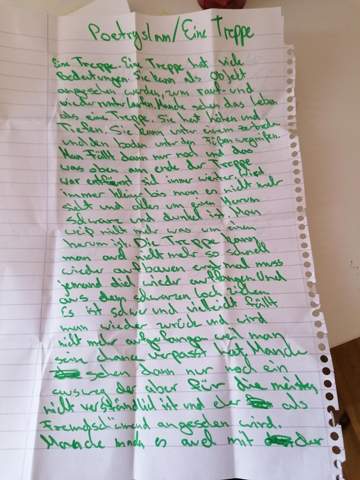 Poetryslam/Eine Treppe
Eine Treppe. Eine Treppe hat viele
Bedeutungen. Sie kann als Objekt
angesehen werden, zum rauf und
wieder runter laufen. Manche sehen das Leben
als eine Treppe. Sie hat Höhen und
Tiefen. Sie kann unter einem zerbrechen
und den boden unter den Füßen wegreißen.
Man fällt dann nur noch und das
was oben am ende der Treppe
war entfernt sich immer weiter, wird
immer kleiner bis man es nicht mehr
sieht und alles um einen herum
schwarz und dunkel ist. Man
weiß nicht mehr was um einen
herum ist. Die Treppe kann
man auch nicht mehr so schnell
wieder aufbauen erstmal muss
jemand dich wieder auffangen und
aus dem schwarzen Loch ziehen
Es ist schwer und vielleicht fällt
man wieder zurück und wird
nicht mehr aufgefangen weil man
seine chance verpasst hat. Manche
sehen dann nur noch ein
ausweg der aber für die meisten
nicht verständlich ist und der als
Manche machen es auch mit der